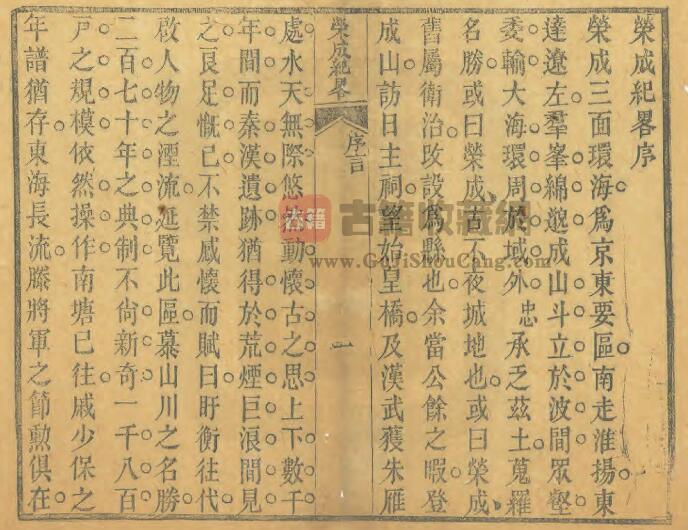 榮成紀畧序
榮成三面環海爲京東要區南走淮揚東
達遼左羣峯綿邈成山斗立於波間眾壑
委輸大海環周於域外忠承乏茲土蒐羅
名勝或曰榮成古不夜城地也或曰榮成
舊屬衛治改設爲縣也余當公餘之暇登
成山訪日主祠望始皇橋及漢武獲朱雁
榮成紀畧
序言
一
處水天無際悠然動懷古之思上下數千
年間而秦漢遺跡猶得於荒煙巨浪間見
之良足慨已不禁感懷而賦曰盱衡往代
啟人物之湮流延覽此區慕山川之名勝
二百七十年之典制不尙新奇一千八百
戸之規模依然操作南塘已往戚少保之
年譜猶存東海長流滕將軍之節勲俱在
古籍
古籍收藏網
www.GuJiShouCang.com